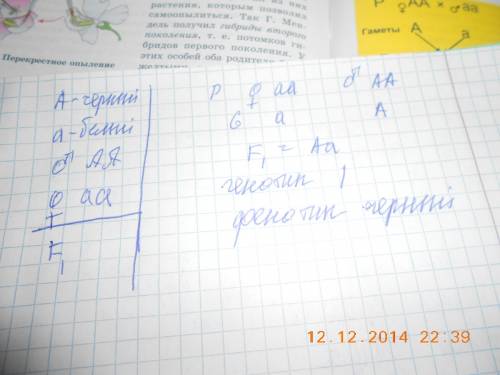 растения, которым позволил
самоопылиться. Так Г. Мен-
дель получил гибриды второго
поколения, т. е. потомков ги-
бридов первого поколения. У
этих особей оба родителя
желтыми
Перекрестное опыление
P ♀AA × ♂aa
Гаметы A a
А-черный
а-белый
♂ АА
♀ аа
F1
P ♀ аа ♂ АА
G а А
F1 = Аа
генотип 1
фенотип черный
12.12.2014 22:39